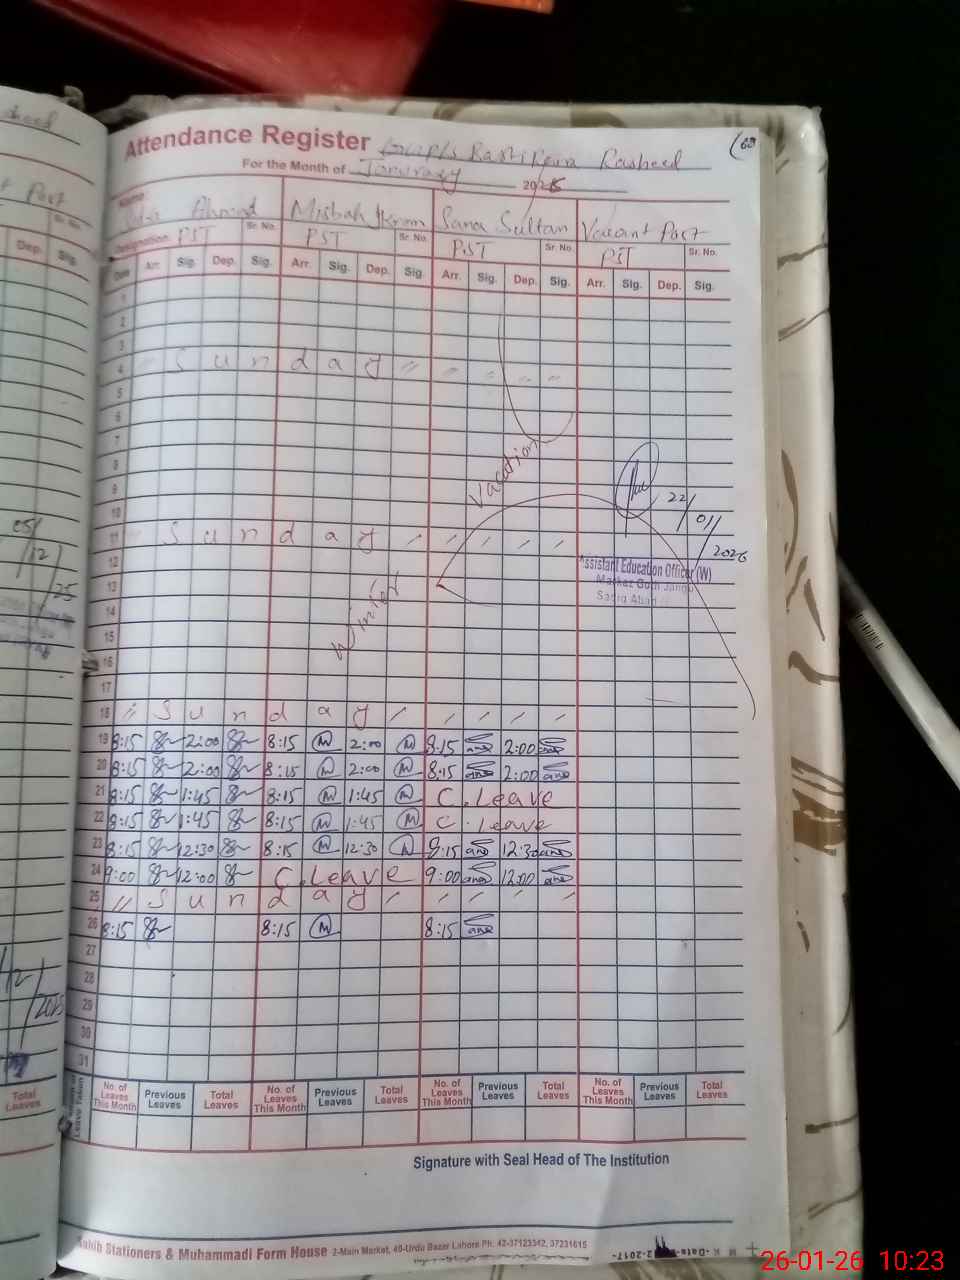 Attendance Register Rasheed
(60
For the Month of January 2026
Name Ahmad Misbah Ikram Sana Sultan Vacant Post
Designation PST Sr. No. PST Sr. No. PST Sr. No. PST Sr. No.
Date Arr. Sig. Dep. Sig. Arr. Sig. Dep. Sig. Arr. Sig. Dep. Sig. Arr. Sig. Dep. Sig.
1
2
3
4 Sunday " " " " "
5
6
7
8
9
10
11 Sunday
12
13
14
15
16
17
Winter Vacation
22/01/2026
Assistant Education Officer (W)
Markaz Goth Jangu
Sadiq Abad
18 " Sunday
19 8:15 2:00 8:15 M 2:00 M 8:15 2:00
20 8:15 2:00 8:15 M 2:00 M 8:15 2:00
21 8:15 1:45 8:15 M 1:45 M C. Leave
22 8:15 1:45 8:15 M 1:45 M C. Leave
23 8:15 12:30 8:15 M 12:30 M 8:15 12:30
24 9:00 12:00 C. Leave 9:00 12:00
25 " Sunday
26 8:15 8:15 M 8:15
27
28
29
30
31
Leave Taken No. of Leaves This Month Previous Leaves Total Leaves No. of Leaves This Month Previous Leaves Total Leaves No. of Leaves This Month Previous Leaves Total Leaves No. of Leaves This Month Previous Leaves Total Leaves
Signature with Seal Head of The Institution
Stationers & Muhammadi Form House 2-Main Market, 40-Urdu Bazar Lahore Ph: 42-37123342, 37231615
Post
Sr. No.
Dep. Sig.
05/12/25
12/2025
Total Leaves
26-01-26 10:23